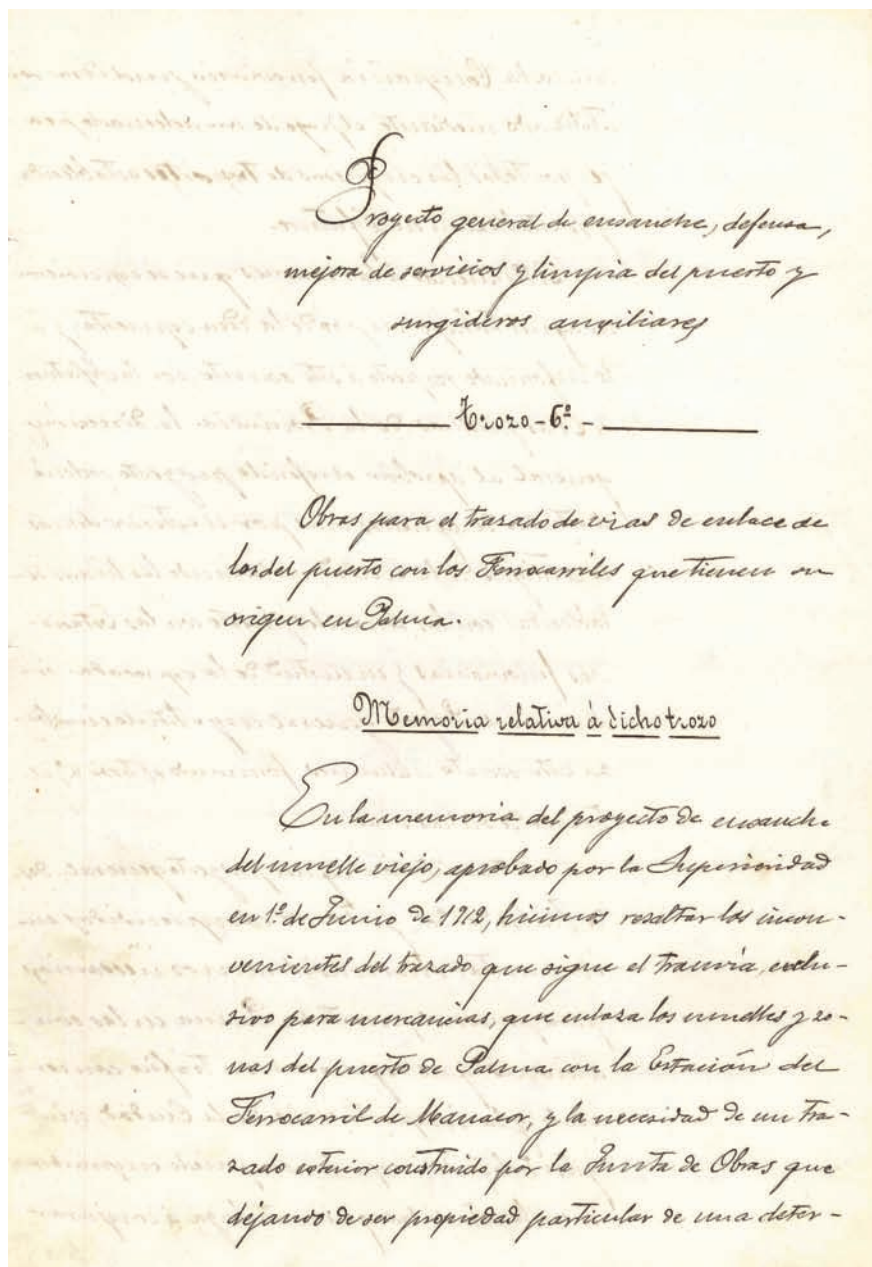 Proyecto general de ensanche, defensa,
mejora de servicios y limpia del puerto y
surgideros auxiliares
Trozo-6º-
Obras para el trazado de vias de enlace de
las del puerto con los Ferrocarriles que tienen su
origen en Palma.
Memoria relativa á dicho trozo
En la memoria del proyecto de ensanche
del muelle viejo, aprobado por la Superioridad
en 1º de Junio de 1912, hicimos resaltar los incon-
venientes del trazado que sigue el tranvía, exclu-
sivo para mercancias, que enlaza los muelles y zo-
nas del puerto de Palma con la Estación del
Ferrocarril de Manacor, y la necesidad de un tra-
zado exterior construido por la Junta de Obras que
dejando de ser propiedad particular de una deter-